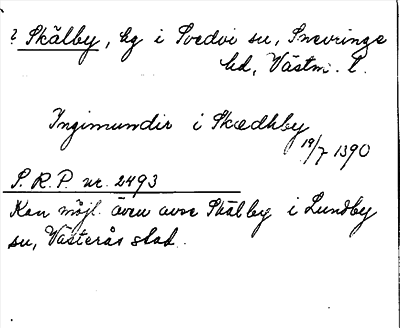 ? Skälby, hg i Svedvi sn, Snevringe
hd, Västm. l.
Ingimundir i Skædhby
19/7 1390
S.R.P. nr. 2493
Kan möjl. även avse Skälby i Lundby
sn, Västerås stad.